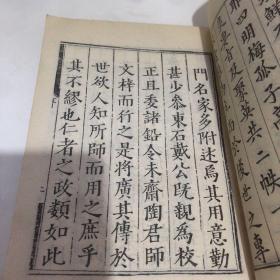 四明梅孤子
門名家多附述爲其用意勤
甚少叅東石戴公旣親爲校
正且委諸鉛令未齋陶君師
文梓而行之是將廣其傳於
世欲人知所師而用之庶乎
其不繆也仁者之政類如此
二